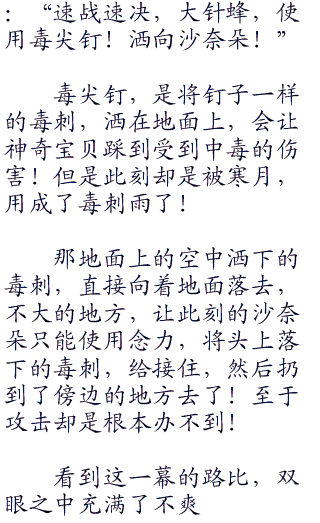 ：“速战速决，大针蜂，使
用毒尖钉！洒向沙奈朵！”
毒尖钉，是将钉子一样
的毒刺，洒在地面上，会让
神奇宝贝踩到受到中毒的伤
害！但是此刻却是被寒月，
用成了毒刺雨了！
那地面上的空中洒下的
毒刺，直接向着地面落去，
不大的地方，让此刻的沙奈
朵只能使用念力，将头上落
下的毒刺，给接住，然后扔
到了傍边的地方去了！至于
攻击却是根本办不到！
看到这一幕的路比，双
眼之中充满了不爽